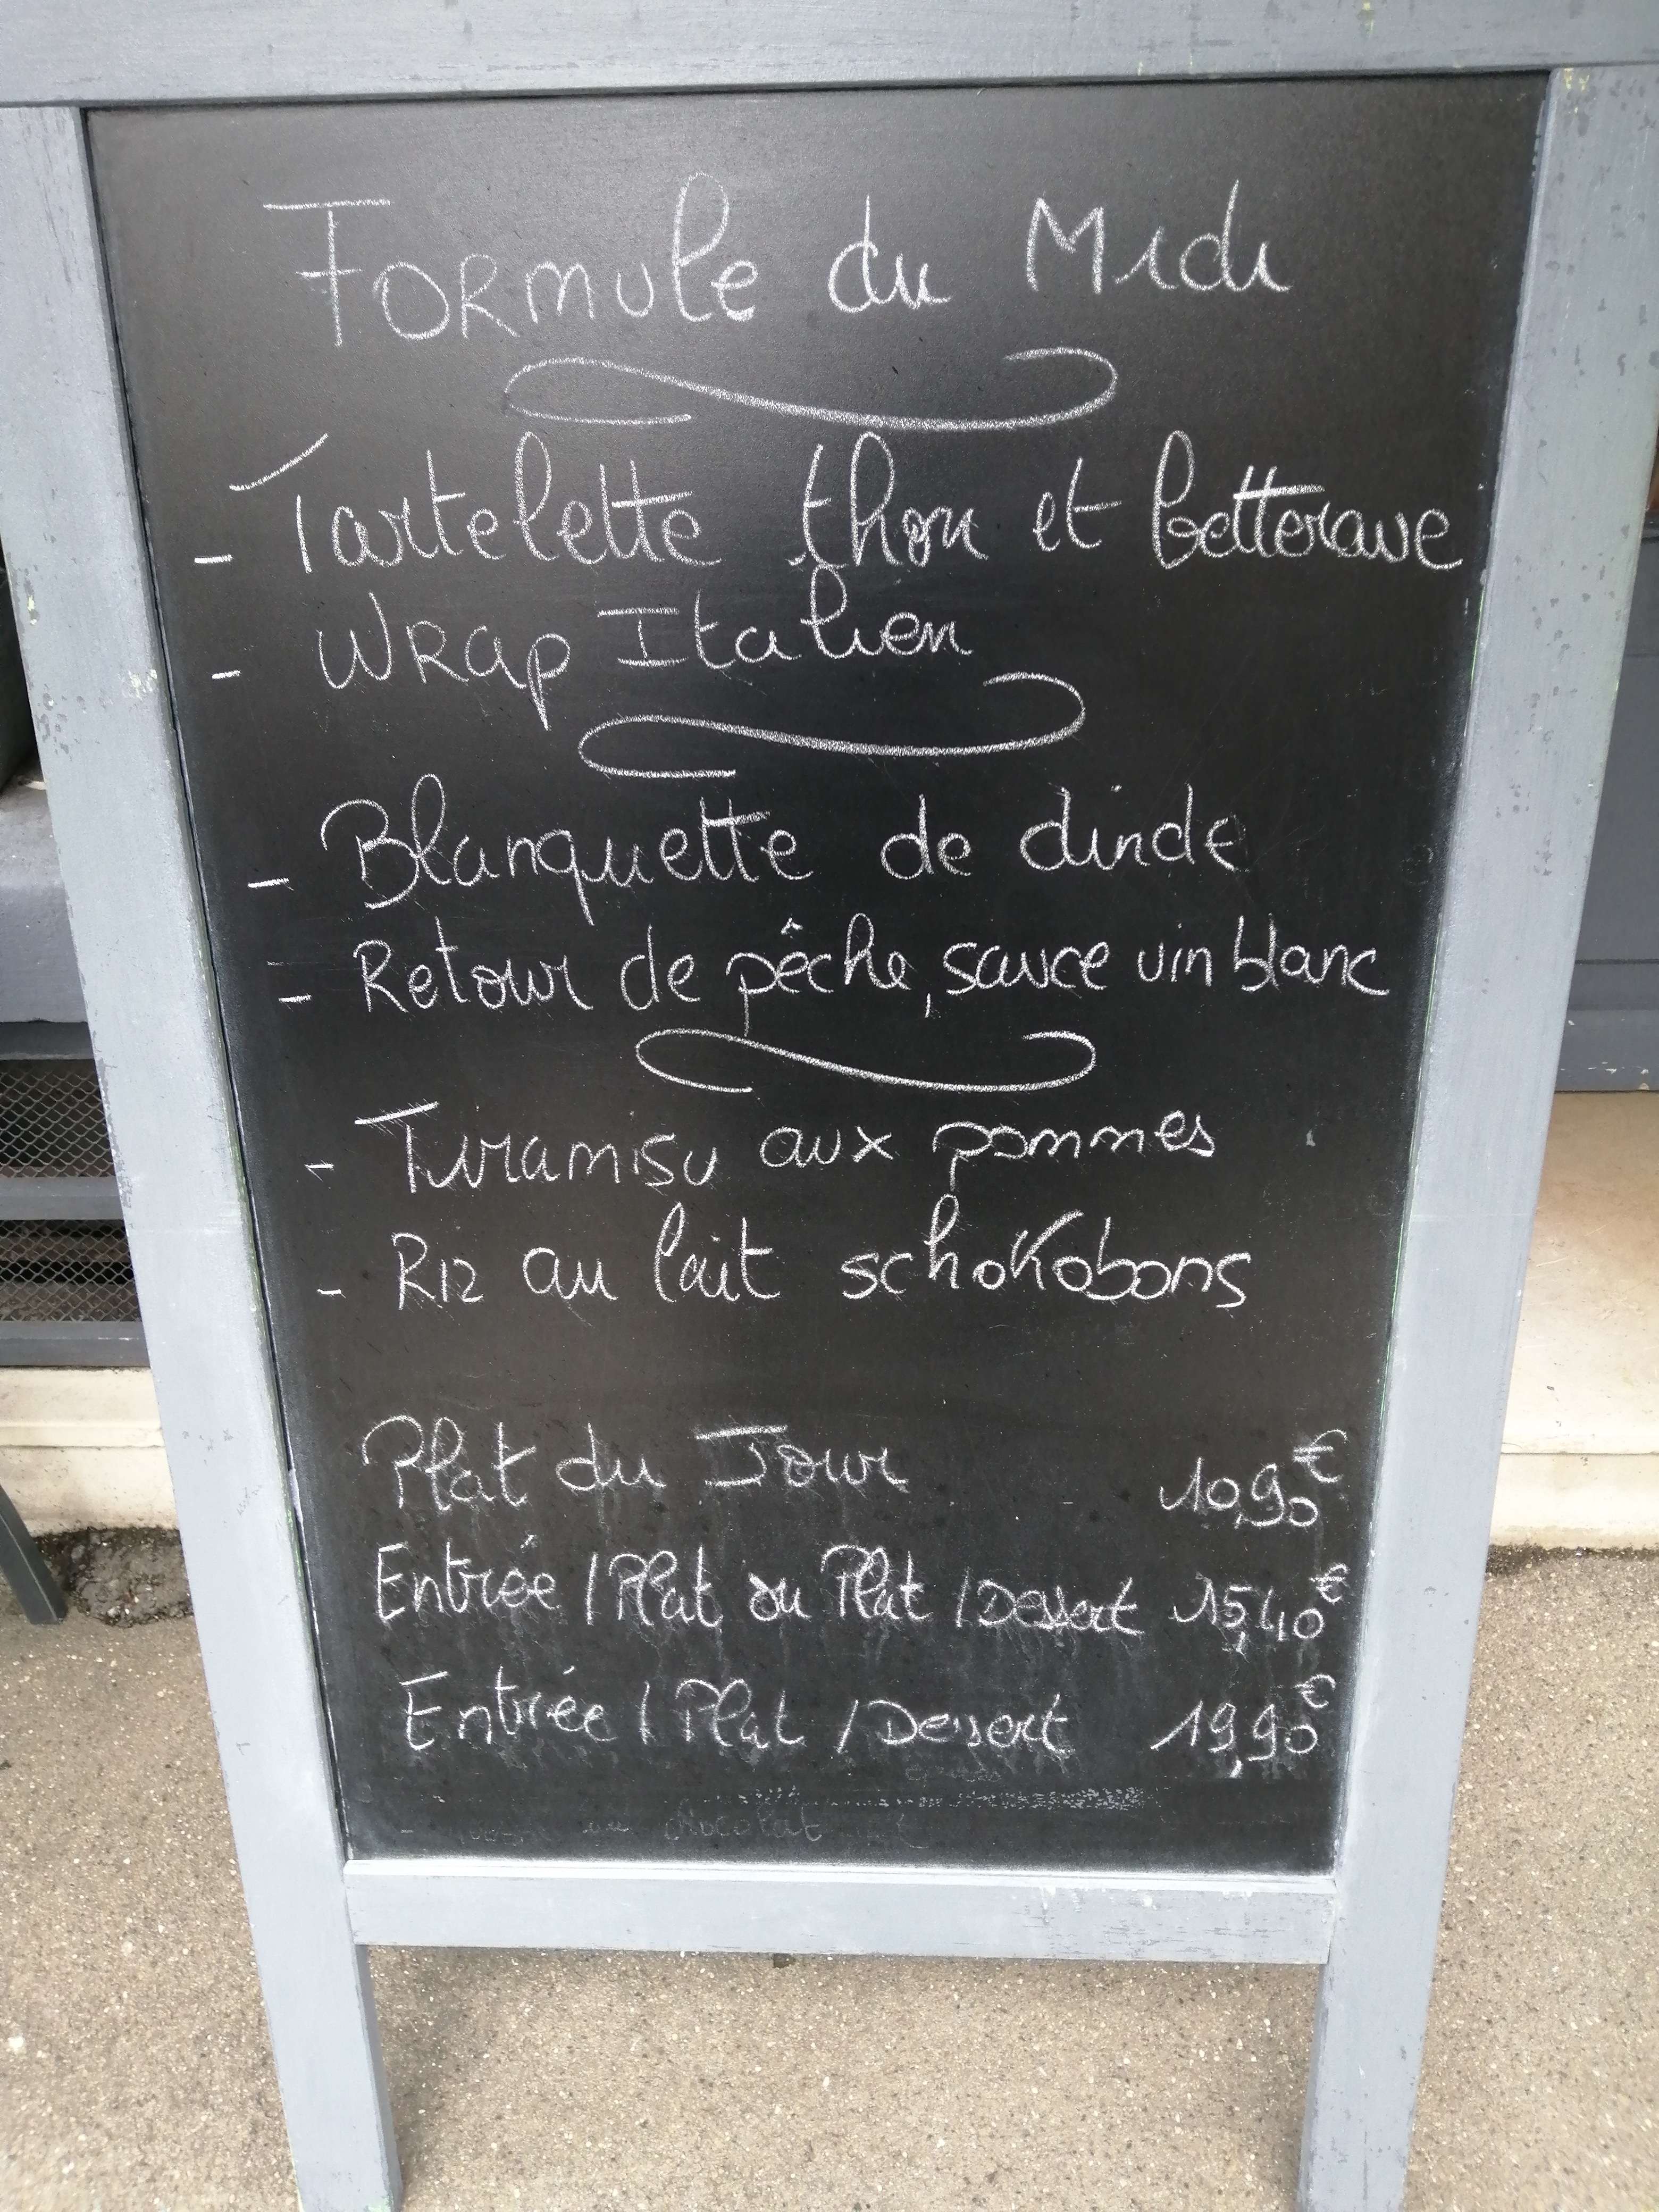 Formule du Midi
- Tartelette thon et betterave
- Wrap Italien
- Blanquette de dinde
- Retour de pêche, sauce vin blanc
- Tiramisu aux pommes
- Riz au lait schokobons
Plat du Jour 10,90€
Entrée / Plat ou Plat / Dessert 15,40€
Entrée / Plat / Dessert 19,90€
- au chocolat